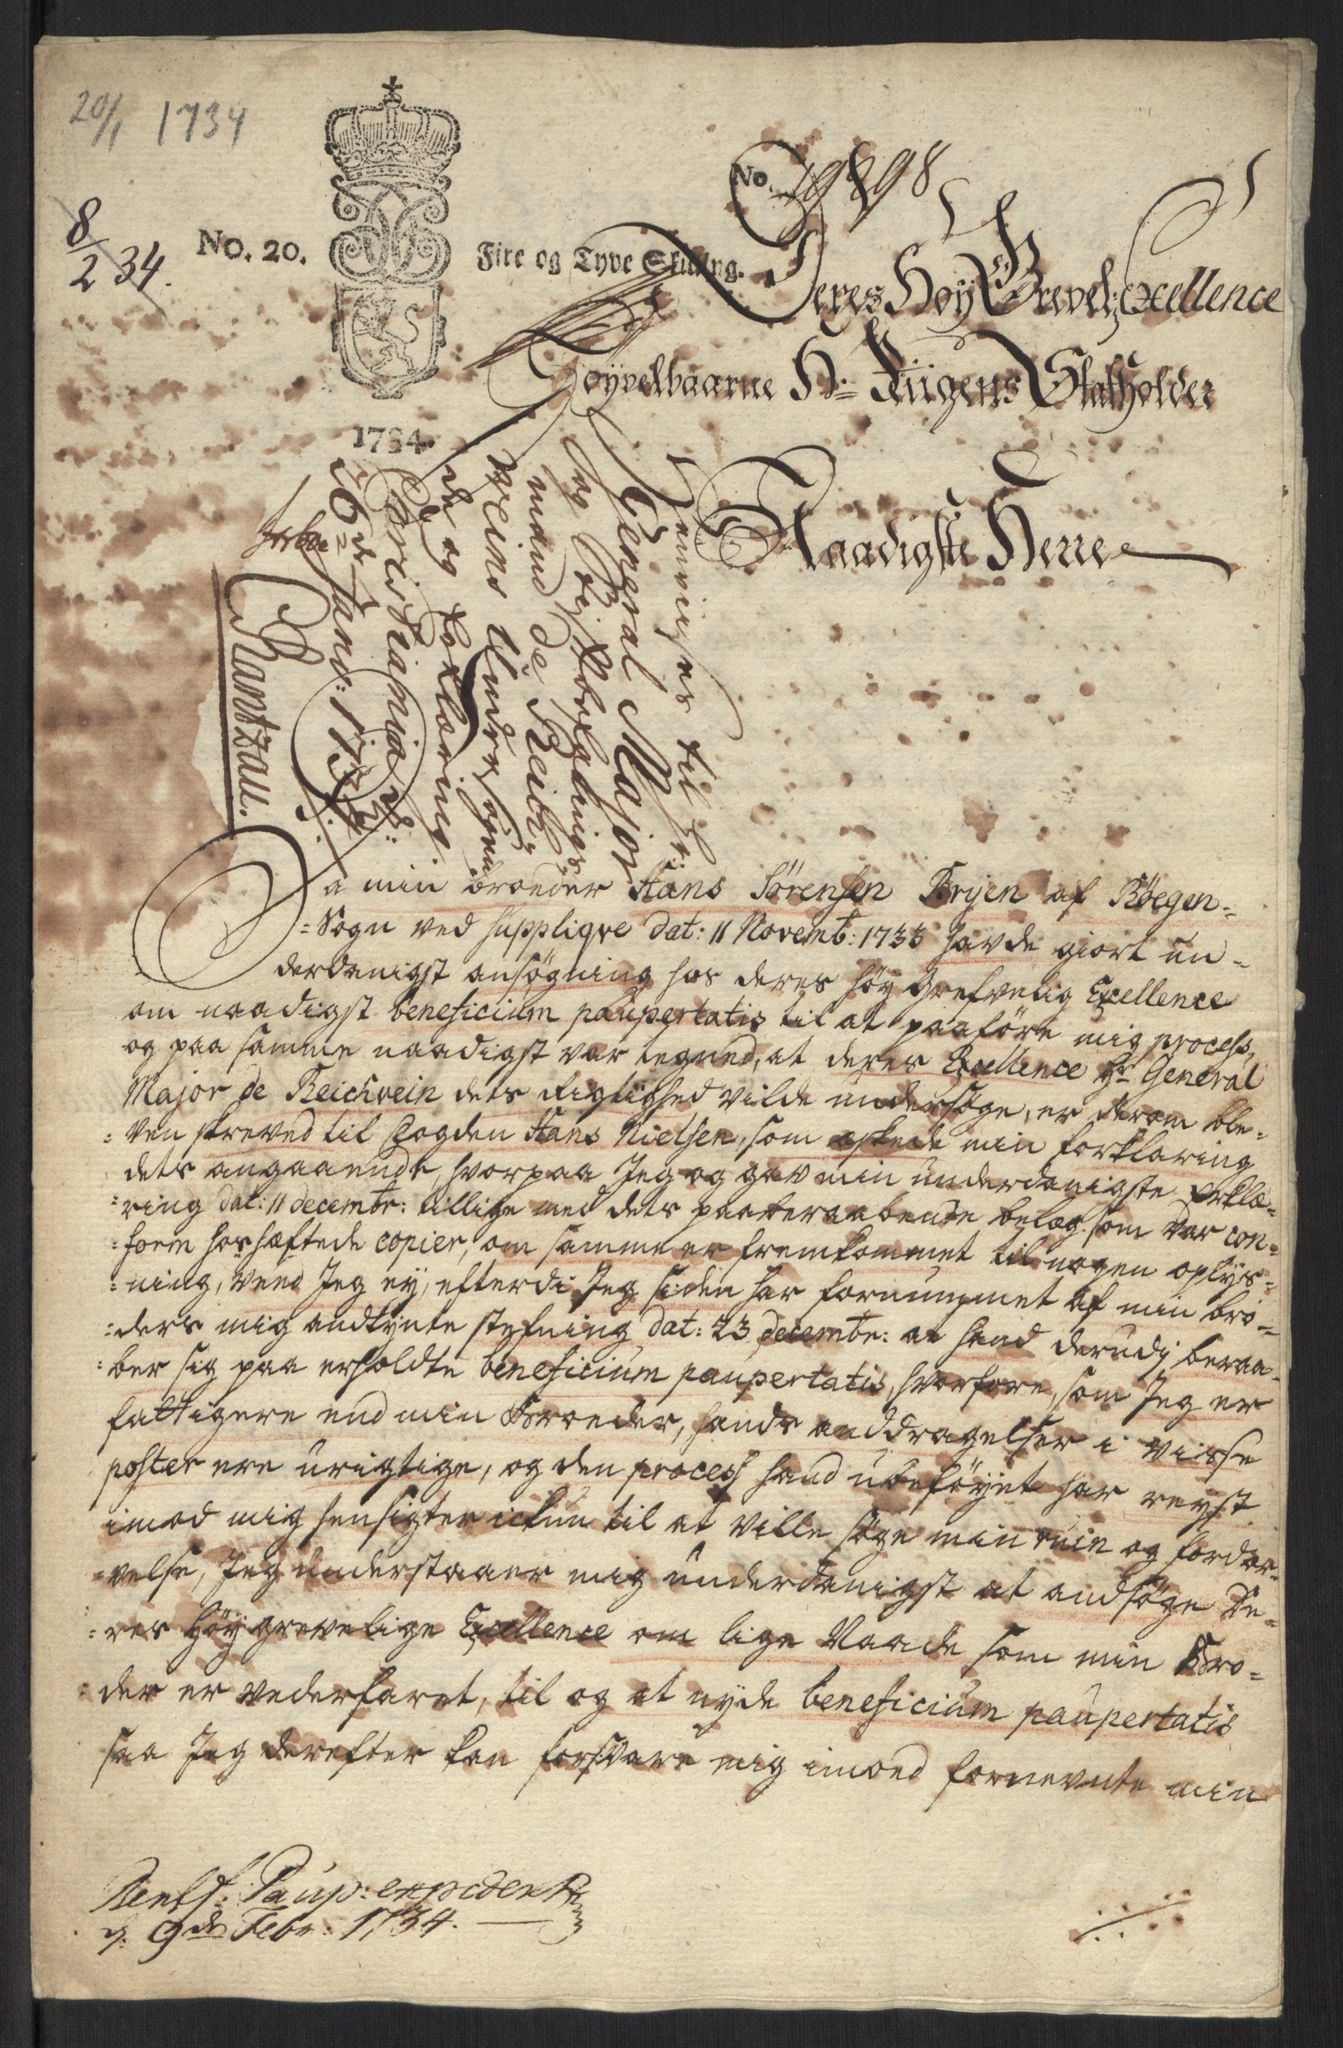 20/1 1734
8/2 34.
No. 20.
Fire og Tyve Skilling.
1734.
No. 98
Deres Høy Grevel: Excellence
Høyvelbaarne Hr Riigens Statholder
Naadigste Herre
henvises til Hr
General Major
og
mand de Reich-
weins Undersøgen
de og Erklæring
Christiania d:
26de Janu: 1734.
Rantzau.
Da min broeder Hans Sørensen Bryen af Røegen-
Sogn ved supplique dat: 11 Novemb: 1733 havde giort un-
derdanigst ansøgning hos deres høy grefvelig Excellence
om naadigst beneficium paupertatis til at paaføre mig process,
og paa samme naadigst var tegned, at deres Excellence Hr General
Major de Reichvein dets Rigtighed vilde undersøge, er derom ble-
ven skreved til fogden Hans Nielsen, som æskede min forklaring
dets angaaende, hvorpaa Jeg og gav min underdanigste Erklæ-
ring dat: 11 decembr: tillige med dets paaberaabende belæg som var con-
form hoshæftede copier, om samme er fremkommet til nogen oplys-
ning, veed Jeg ey, efterdi Jeg siden har fornummet af min bro-
ders mig andkynte stefning dat: 23 decembr: at hand derudj beraa-
ber sig paa erholdte beneficium paupertatis, hvorfore, som Jeg er
fattigere end min Broeder, hands anddragelser i visse
poster ere urigtige, og den process hand ubeføyet har reyst
imod mig hensigter ickun til at ville søge min ruin og fordær-
velse, Jeg understaaer mig underdanigst at andsøge De-
res Høygrevelige Excellence om lige Naade som min Bro-
der er vederfaret, til og at nyde beneficium paupertatis
saa Jeg derefter kan forsvare mig imoed fornevnte min
Benef: Paup: expedert
d: 9de Febr: 1734.